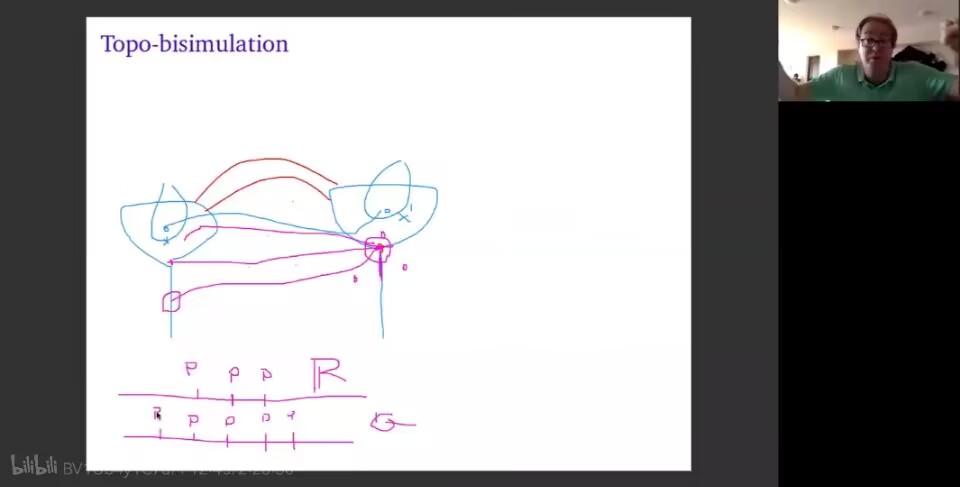 Topo-bisimulation
x
x'
P P P R
P P P P
bilibili